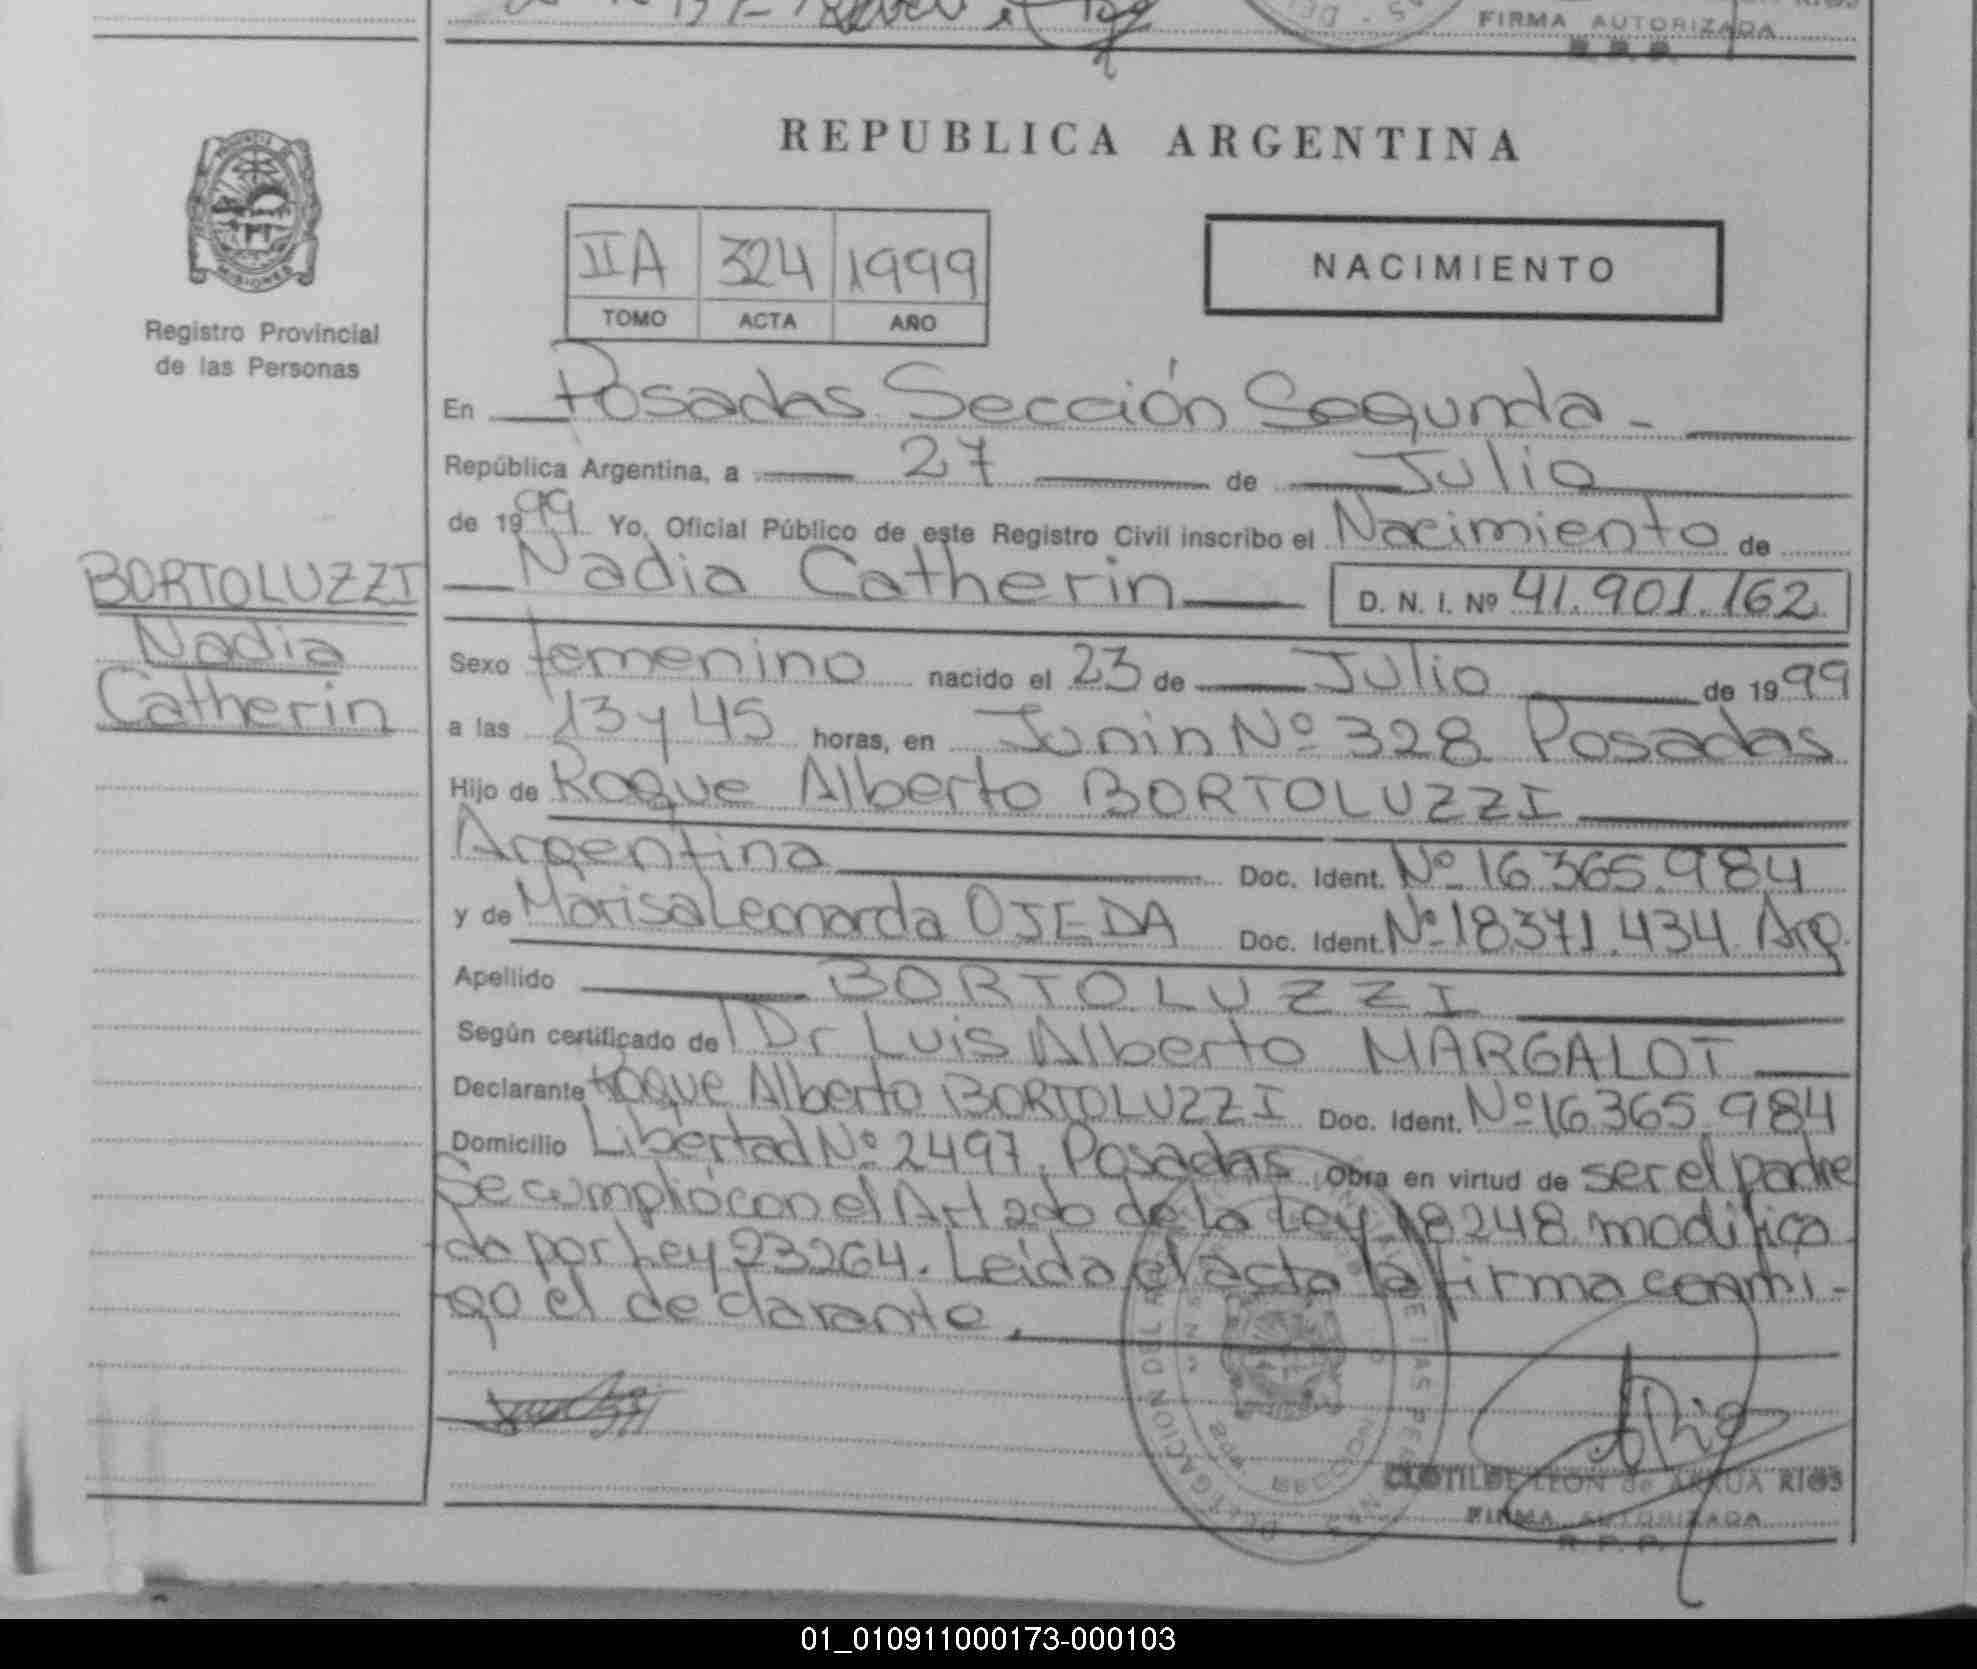 FIRMA AUTORIZADA
R. P. P.
PROVINCIA DE
MISIONES
Registro Provincial
de las Personas
REPUBLICA ARGENTINA
IIA 324 1999
TOMO ACTA AÑO
NACIMIENTO
En Posadas Sección Segunda -
República Argentina, a 27 de Julio
de 1999 Yo, Oficial Público de este Registro Civil inscribo el Nacimiento de
Nadia Catherin D. N. I. Nº 41.901.162
BORTOLUZZI
Nadia
Catherin
Sexo femenino nacido el 23 de Julio de 1999
a las 13 y 45 horas, en Junin Nº 328 Posadas
Hijo de Roque Alberto BORTOLUZZI
Argentina Doc. Ident. Nº 16365.984
y de Marisa Leonarda OJEDA Doc. Ident. Nº 18371.434 Arg.
Apellido BORTOLUZZI
Según certificado de Dr Luis Alberto MARGALOT
Declarante Roque Alberto BORTOLUZZI Doc. Ident. Nº 16365.984
Domicilio Libertad Nº 2497. Posadas Obra en virtud de ser el padre
Se cumplió con el Art 2do de la Ley 18248 modifica
do por Ley 23264. Leida el acta la firma conmi-
go el declarante.
CLOTILDE LEON de ARRUA RIOS
FIRMA AUTORIZADA
R. P. P.
01_010911000173-000103